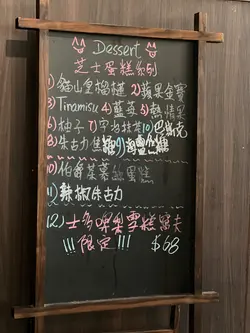 Dessert
芝士蛋糕系列
1) 貓山皇榴槤 2) 蘋果金寶
3) Tiramisu 4) 藍莓 5) 熱情果
6) 柚子 7) 宇治抹茶 10) 巴斯克
8) 朱古力焦糖 9) 海鹽
10) 伯爵茶慕絲蛋糕
11) 辣椒朱古力
12) 士多啤梨雪糕窩夫
!!! 限定 !!! $68